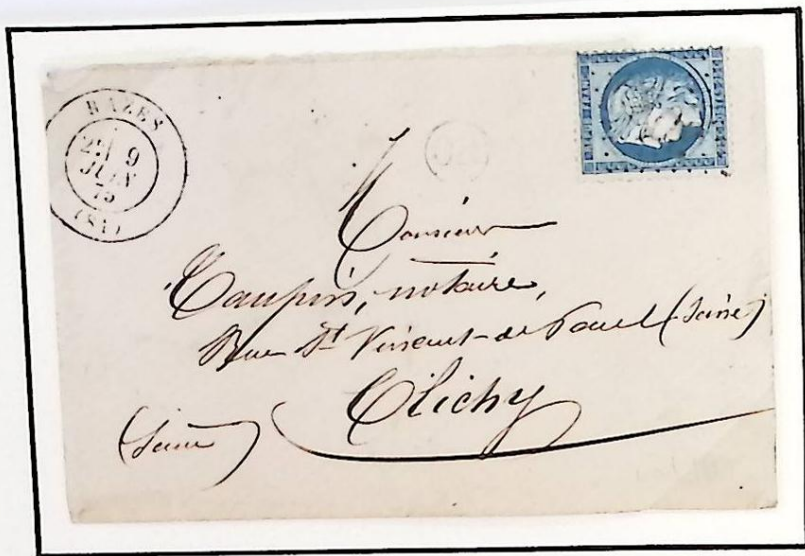 RAZES
2E 9
JUIN
75
(81)
OR
Monsieur
Taupin, notaire,
Rue St Vincent-de Paul (Seine)
Clichy
(Seine)